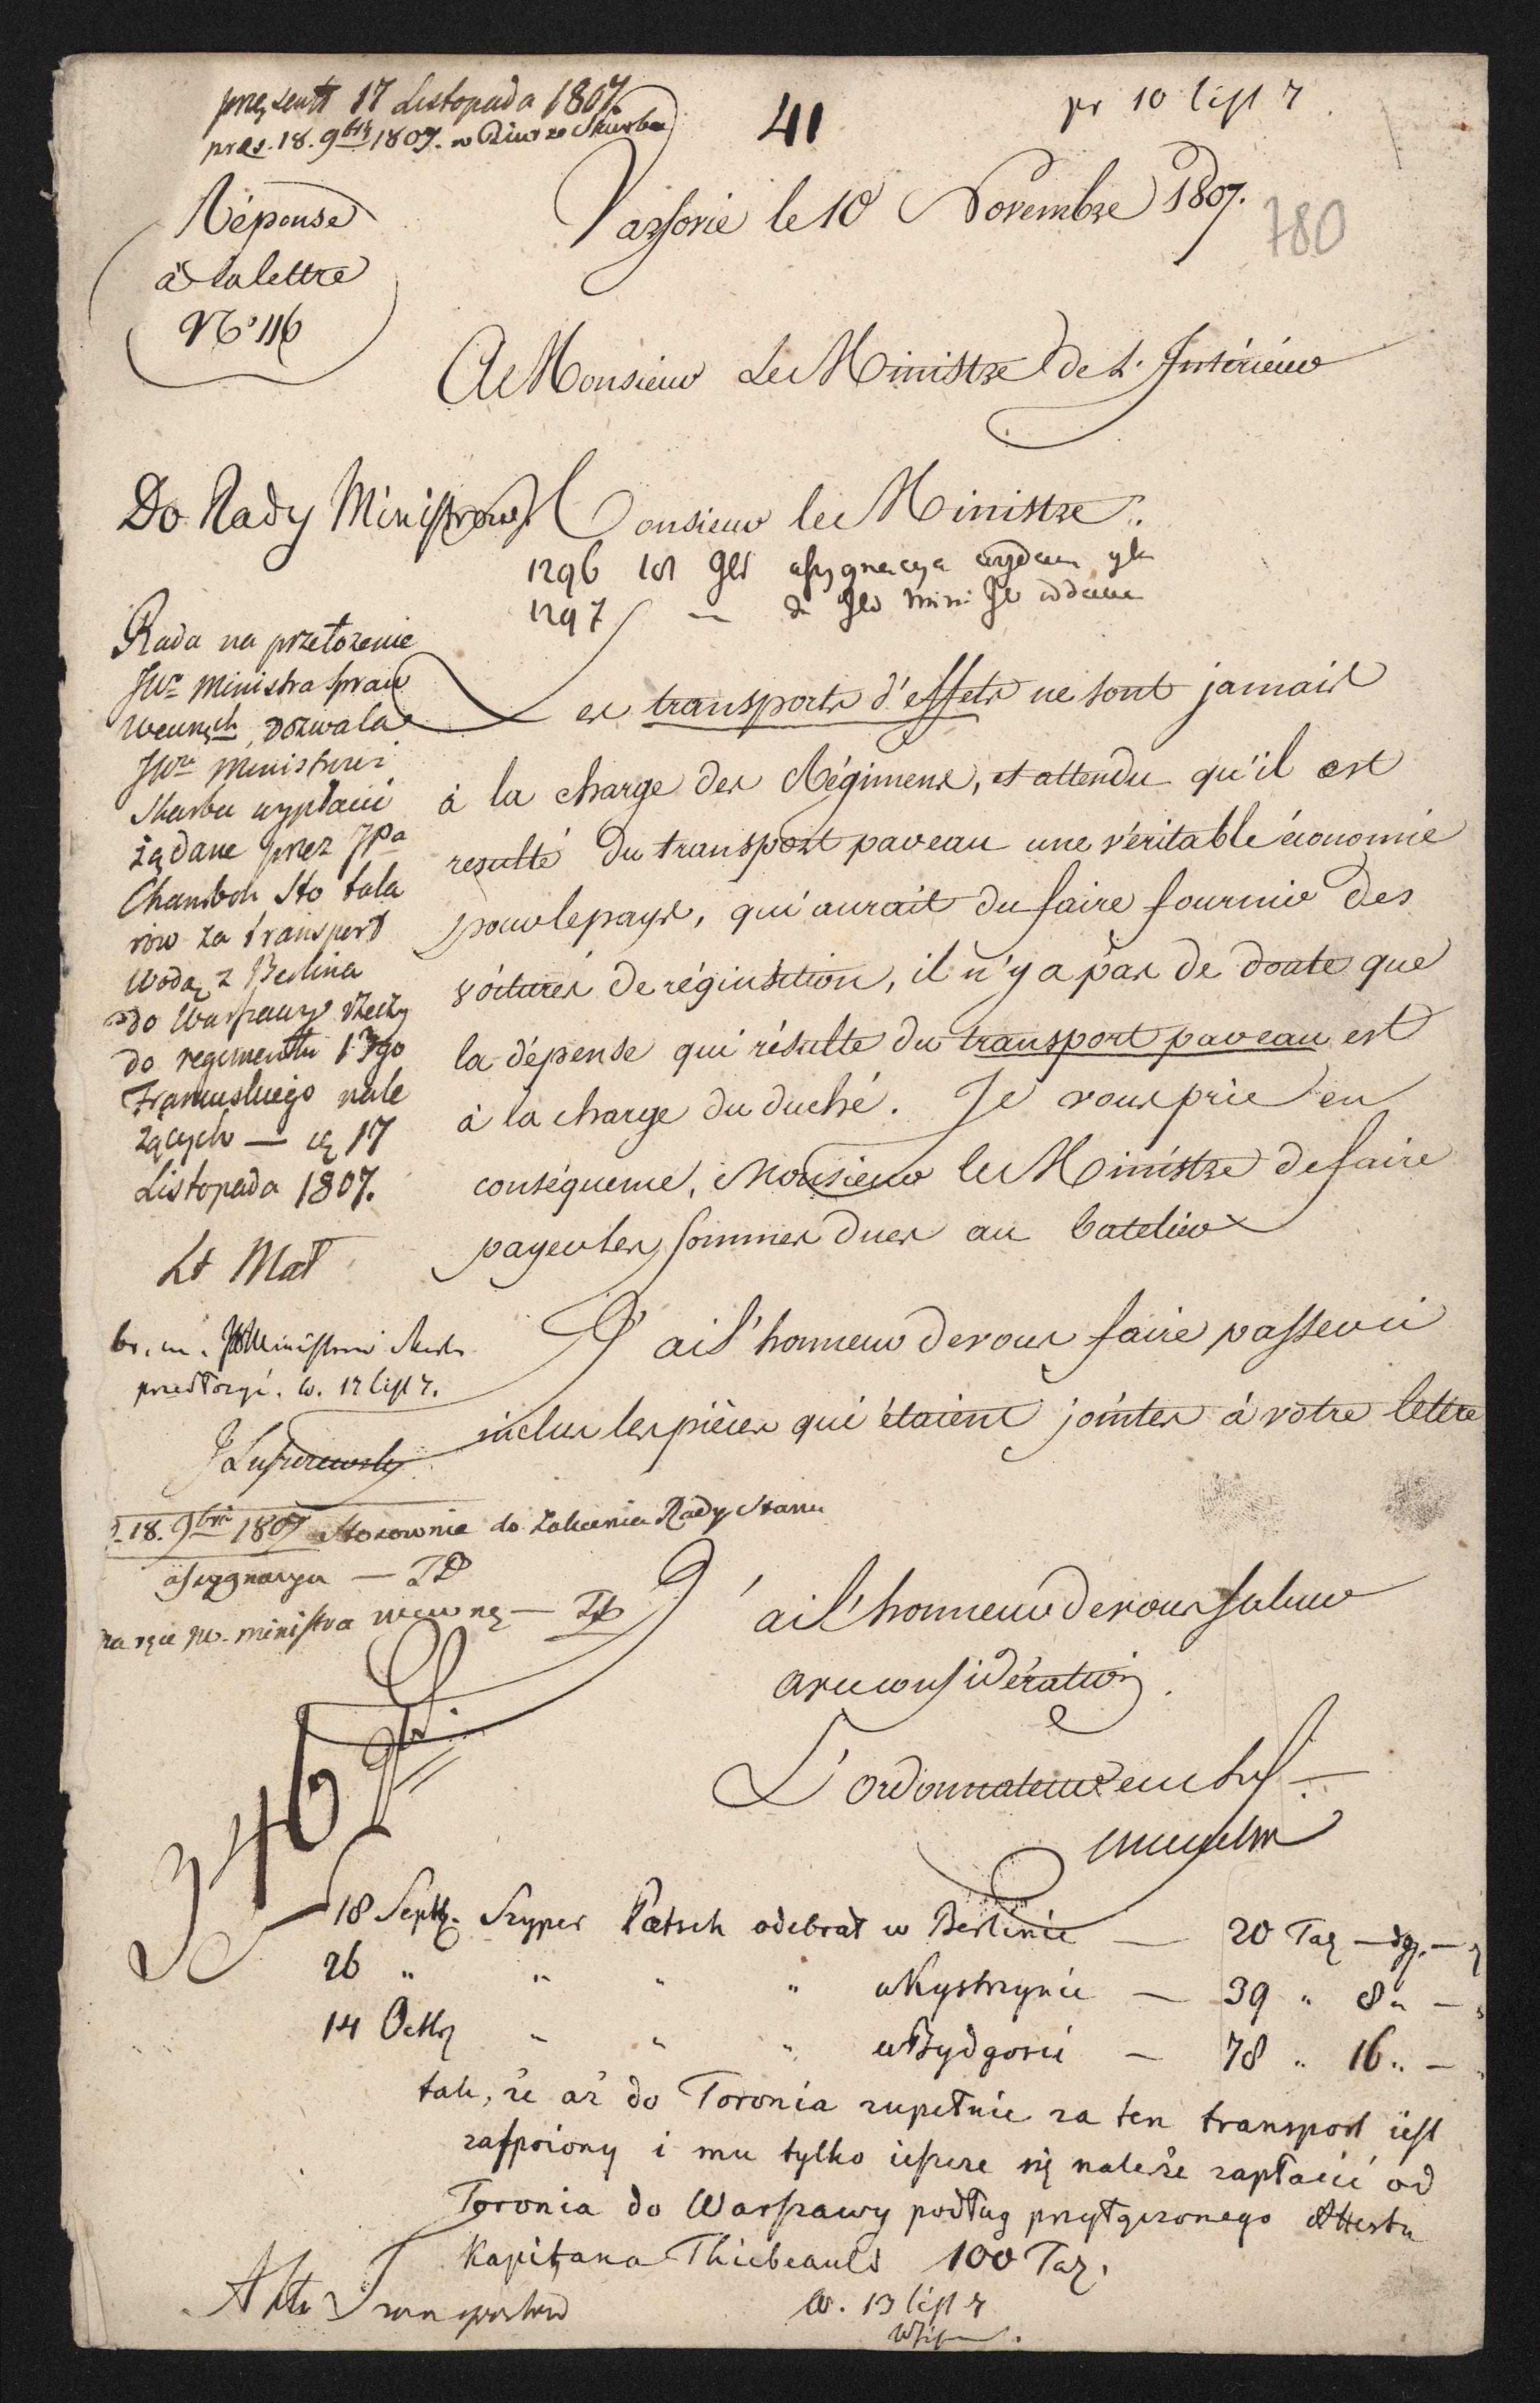 prezent 17 Listopada 1807
pras. 18. 9bris 1807. w Biurze Skarbu
41
pr 10 list 7
Réponse
à la lettre
No 116
Varsovie le 10 Novembre 1807.
780
A Monsieur Le Ministre de L'Intérieur
Do Rady Ministrow
Monsieur le Ministre.
1296 assygnacya wydana
1297 — do
Rada na przełożenie
JWo Ministra spraw
Wewnęch dozwala
JWmu Ministrowi
Skarbu wypłacić
żądane przez JPa
Chambon Sto tala
rów za transport
Wodą z Berlina
do Warszawy rzeczy
do regimentu 13go
Francuskiego nale
żących — d. 17
Listopada 1807.
Lt Mał
Les transports d'effets ne sont jamais
à la charge des Régimens, et attendu qu'il est
resulté du transport par eau une véritable économie
pour le pays, qui aurait du faire fournir des
voitures de réquisition, il n'y a pas de doute que
la dépense qui résulte du transport par eau est
à la charge du duché. Je vous prie en
conséquence, Monsieur le Ministre de faire
payer les sommes dues au batelier
br. m. JW Ministrowi Skarbu
przedłożyć. w. 17 list 7.
J Łuszczewski
J'ai l'honneur de vous faire passer ci
inclus les pièces qui étaient jointes à votre lettre
18. 9bris 1807 Stosownie do zalecenia Rady Stanu
assygnacya —
na ręce JW. ministra wewnę —
J'ai l'honneur de vous saluer
avec considération.
L'ordonnateur en chef
346
18 Septb. Szyper Pætsch odebrał w Berlinie — 20 Tal — dg. —
26 " " " " w Kystrzynie — 39 " 8 " —
14 Octb " " " w Bydgości — 78 " 16 " —
tak, że aż do Toronia zupełnie za ten transport iest
zaspoiony i mu tylko ieszcze się należe zapłacić od
Toronia do Warszawy podług przyłączonego Attestu
Kapitana Thiebeauld 100 Tal.
w. 13 list 7
Akta Transportow